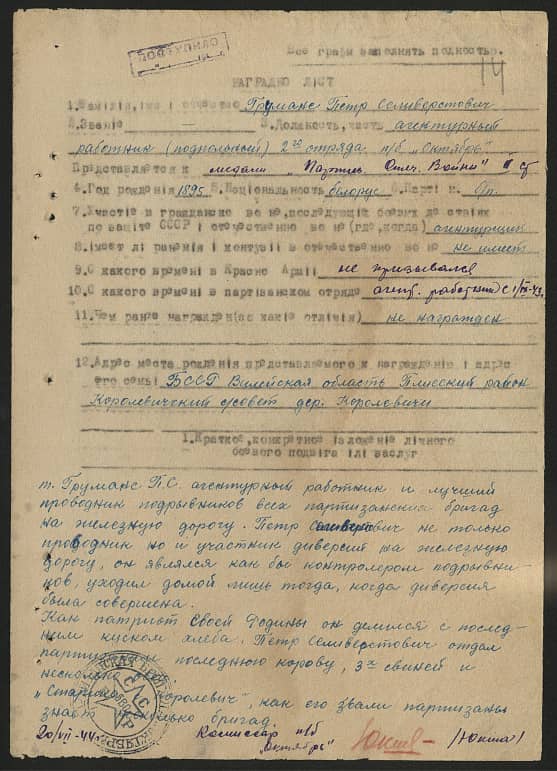 Все графы заполнять полностью.
14
НАГРАДНО ЛІСТ
1. Фамілія, імя і отчество Груманс Петр Селиверстович
2. Звание — 3. Должность, часть агентурный
работник (подпольный) 2го отряда п/б "Октябрь"
Представляется к медали "Партиз. Отеч. Войны" II ст
4. Год рождения 1895 5. Національность білорус 6. Парті
7. Участие в гражданско во но, последующіх боевых де ствіях
по защіте СССР і отечественно во но (где, когда) агентурщик
8. Імеет лі ранения і контузіі в отечественно во но не имеет
9. С какого времені в Красно Арміі не призывался
10. С какого времені в партізанском отряде агент. работник с 1/
11. Чем ранее награжден (за какіе отлічія) не награжден
12. Адрес места рождения представляемого к награждению і адрес
его семьі БССР Вилейская область Плисский район
Королевичский с/совет дер. Королевичи
1. Краткое, конкретное ізложение лічного
боевого подвіга ілі заслуг
т. Груманс П.С. агентурный работник и лучший
проводник подрывников всех партизанских бригад
на железную дорогу. Петр Селиверстович не только
проводник но и участник диверсий на железную
дорогу, он являлся как бы контролером подрывни-
цов, уходил домой лишь тогда, когда диверсия
была совершена.
Как патриот своей Родины он делился с послед-
ним куском хлеба. Петр Селиверстович отдал
последнюю корову, 3х свиней и
Королевич", как его звали партизаны
знает бригад.
20/VII-44г. Комиссар п/б
"Октябрь" /Юкша/